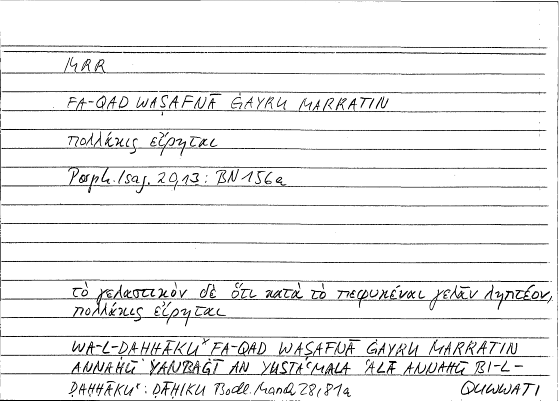 MRR
FA-QAD WAṢAFNĀ ĠAYRU MARRATIN
πολλάκις εἴρηται
Porph. Isag. 20,13: BN 156a
τὸ γελαστικὸν δὲ ὅτι κατὰ τὸ πεφυκέναι γελᾶν ληπτέον,
πολλάκις εἴρηται
WA-L-ḌAHHĀKU* FA-QAD WAṢAFNĀ ĠAYRU MARRATIN
ANNAHŪ YANBAĠĪ AN YUSTAʿMALA ʿALĀ ANNAHŪ BI-L-
ḌAHHĀKU*: ḌĀHIKU Bodl. Marsh 28, 81a QUWWATI